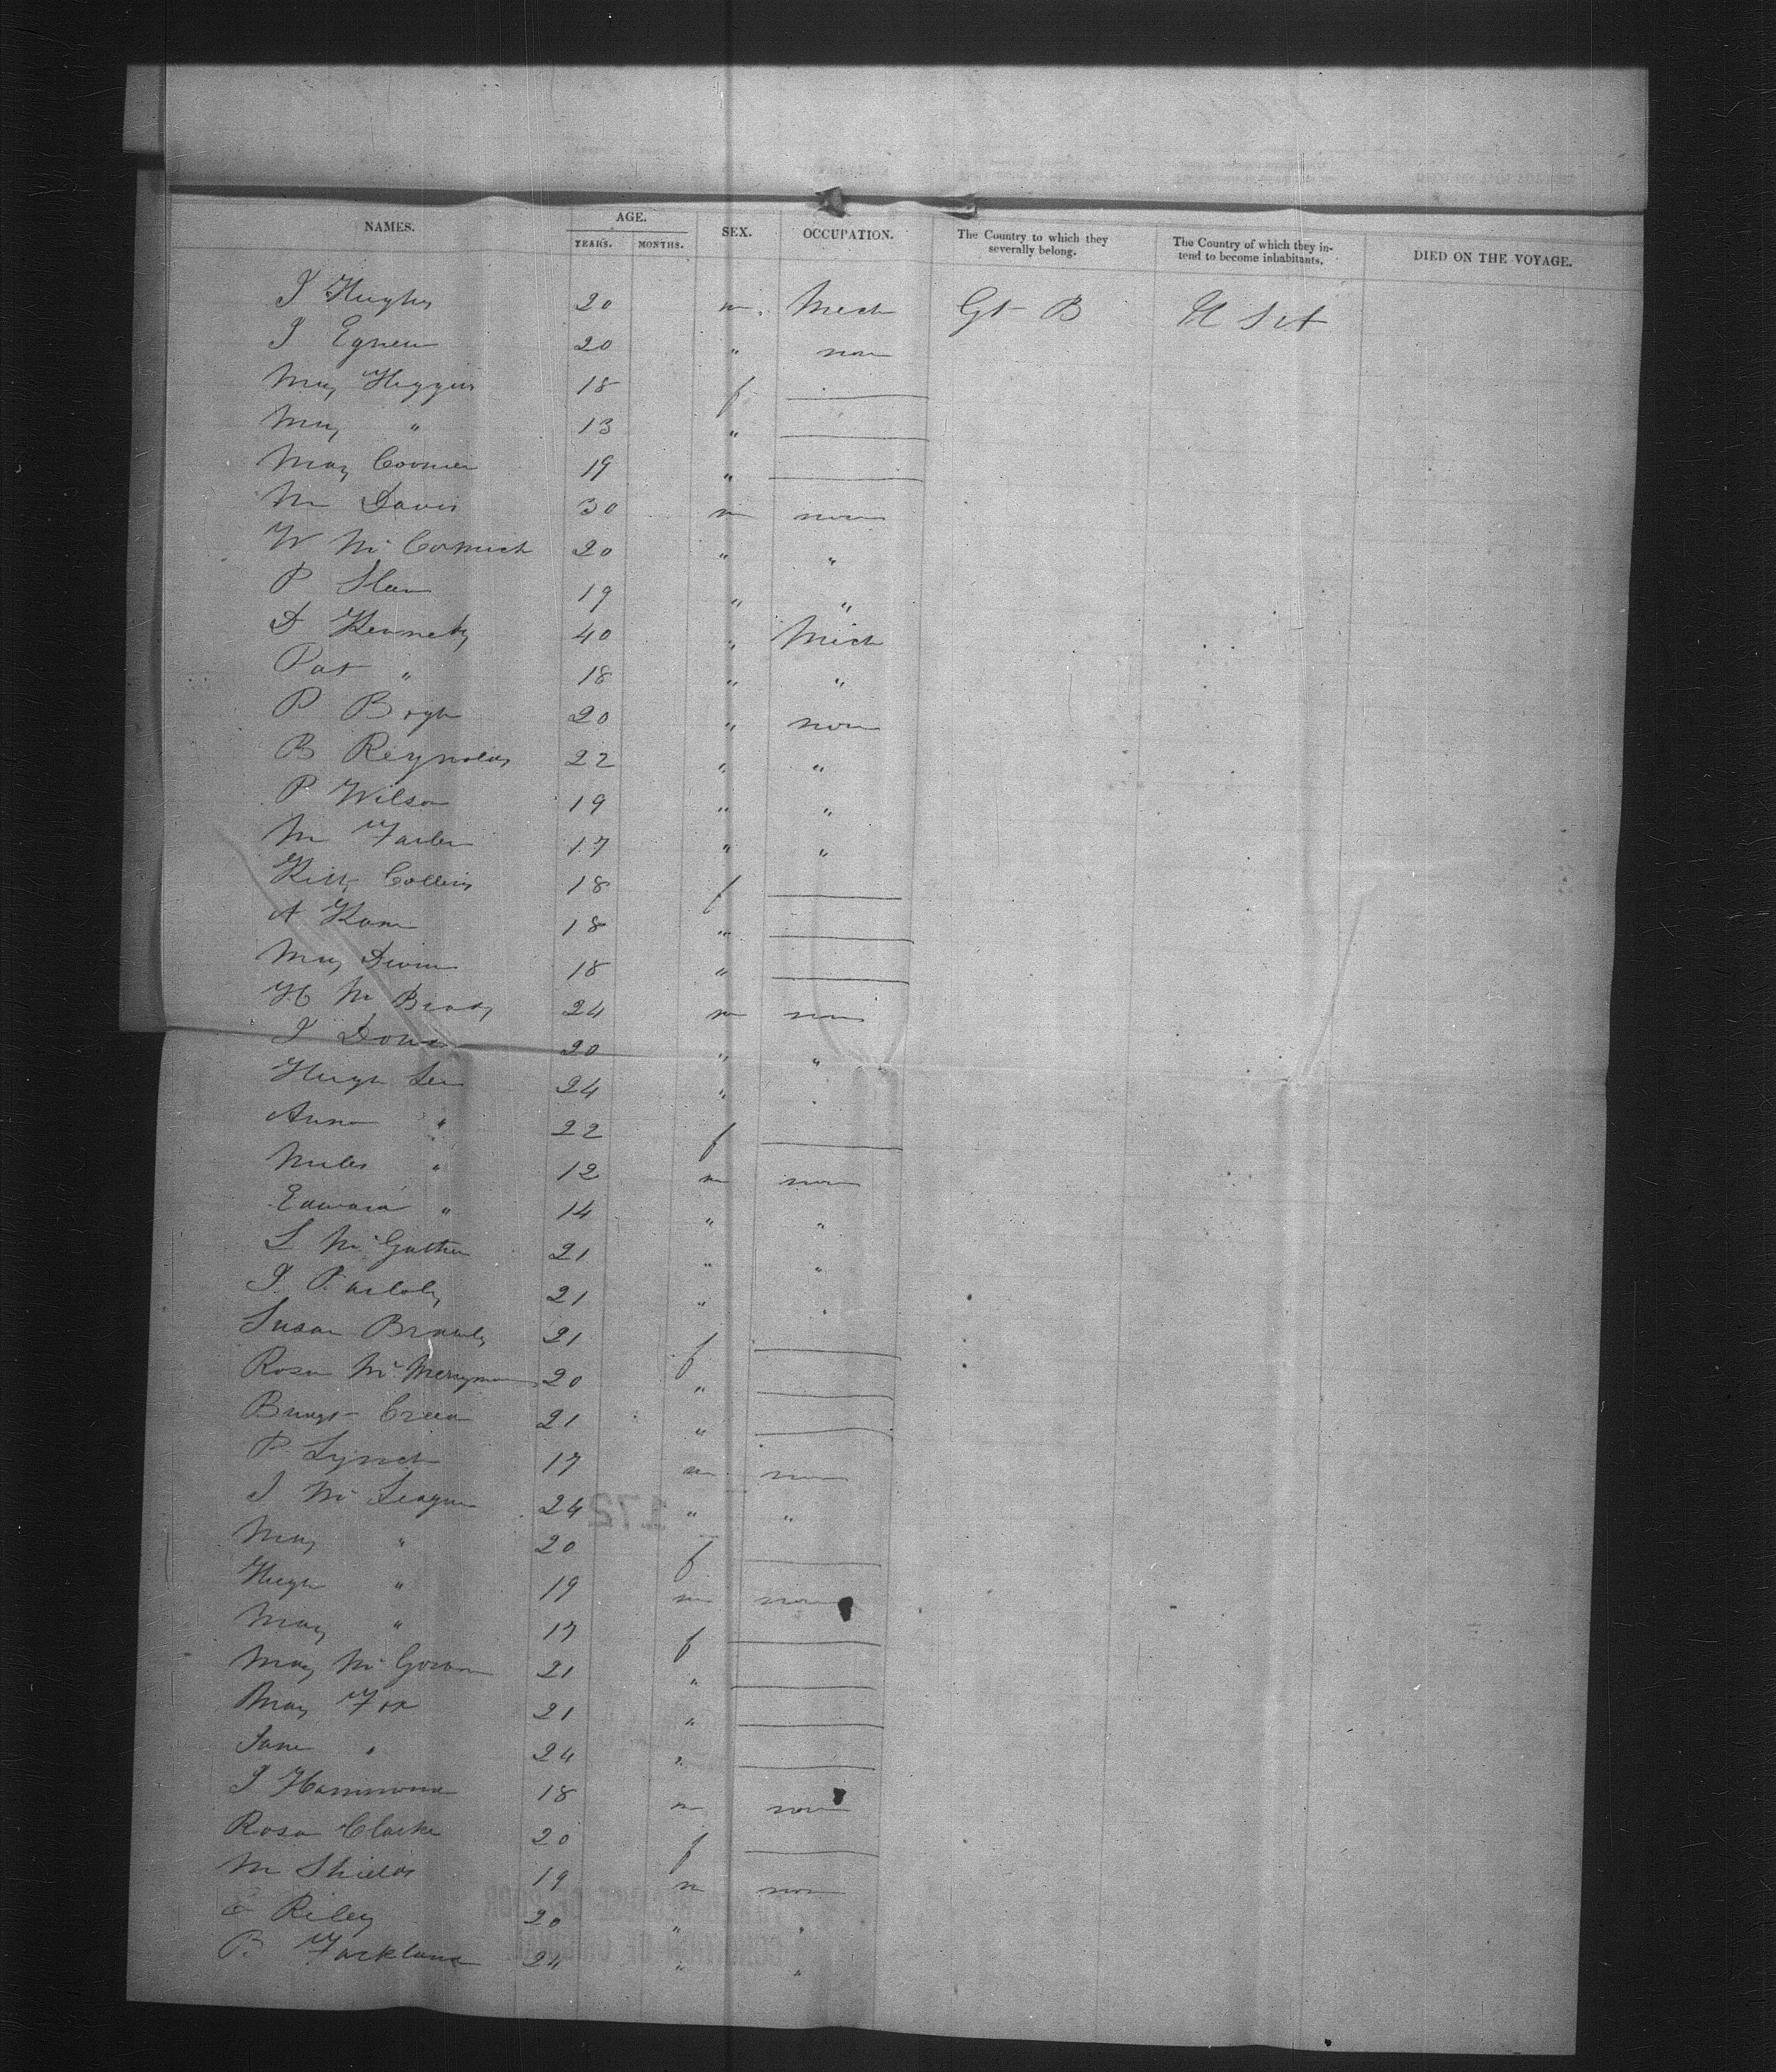 NAMES. AGE. YEARS. MONTHS. SEX. OCCUPATION. The Country to which they severally belong. The Country of which they intend to become inhabitants. DIED ON THE VOYAGE.
J Hughes 20 m. Mech Gt B U S A
J Egnew 20 " non
Mary Higgins 18 f
Mary " 13 "
Mary 19 "
M Davis 30 m non
W McCormick 20 " "
P Slan 19 " "
D Kennedy 40 " Mech
Pat " 18 " "
P Boyle 20 " non
B Reynolds 22 " "
P Wilson 19 " "
M 17 " "
Kitty Collins 18 f
A Kane 18 "
Mary Divin 18 "
H McBrady 24 m non
J 20 " "
Hugh Lee 24 " "
Anna " 22 f
Miles " 12 m non
Edward " 14 " "
L 21 " "
J 21 " "
Susan Brawly 21 f
Rosa McMerryman 20 "
Bridgt Creen 21 "
P Lynch 17 m non
J McLeague 24 " "
Mary " 20 f
Hugh " 19 m non
Mary " 17 f
Mary McGowan 21 "
Mary Fox 21 "
Jane " 24 "
J Hammond 18 m non
Rosa Clarke 20 f
M Shields 19 m non
E Riley 20 " "
B. Farkland 24 " "
172